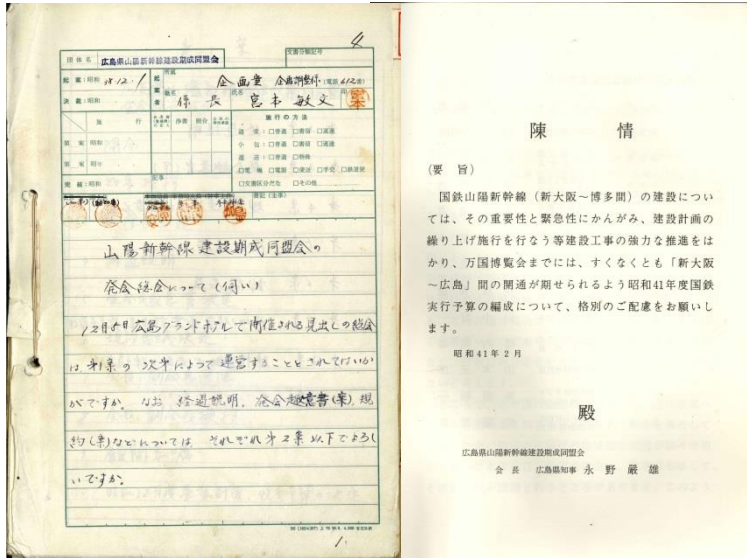 4
団体名 広島県山陽新幹線建設期成同盟会
文書分類記号
起案 昭和 12.1
決裁 昭和
企画室 企画調整係 (電話 612番)
係長 氏名 宮本敏文
施行の方法
浄書 照合
通常 □普通 □書留 □速達
小包 □普通 □書留 □速達
□電報 □電話 □使送 □手交 □鉄道便
□文書区分だな □その他
山陽新幹線建設期成同盟会の
発会総会について(伺い)
12月8日広島グランドホテルで開催される見出しの総会
は、第1案の次第によって運営することとされてはいか
がですか。なお、経過説明、発会趣意書(案)、規
約(案)などについては、それぞれ第2案以下でよろし
いですか。
1.
陳情
(要旨)
国鉄山陽新幹線(新大阪~博多間)の建設につい
ては、その重要性と緊急性にかんがみ、建設計画の
繰り上げ施行を行なう等建設工事の強力な推進をは
かり、万国博覧会までには、すくなくとも「新大阪
~広島」間の開通が期せられるよう昭和41年度国鉄
実行予算の編成について、格別のご配慮をお願いし
ます。
昭和41年2月
殿
広島県山陽新幹線建設期成同盟会
会長 広島県知事 永野嚴雄